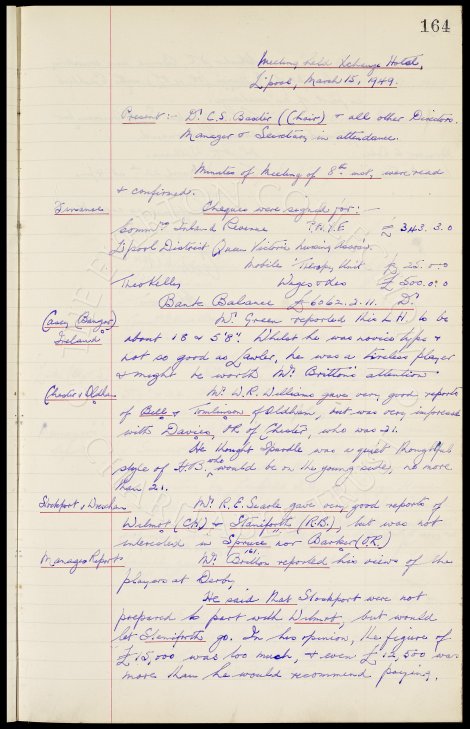 164
Meeting held Xchange Hotel,
L'pool, March 15, 1949.
Present:- Dr. C.S. Baxter (Chair) & all other Directors.
Manager & Secretary in attendance.
Minutes of Meeting of 8th inst, were read
& confirmed.
Finance Cheques were signed for:-
Inland Revenue P.A.Y.E £ 343. 3. 0
L'pool District Queen Victoria Nursing Assoc.
Mobile Therapy Unit £ 25. 0. 0
Theo Kelly Wages & Exes £ 500. 0. 0
Bank Balance £6062. 2. 11. Dr.
Casey (Bangor) Mr. Green reported this L.H. to be
Ireland about 18 & 5'8". Whilst he was novice type &
not so good as Lawler, he was a tireless player
& might be worth Mr. Britton's attention
Chester v Oldham Mr. W.R. Williams gave very good reports
of Bell & Tomlinson of Oldham, but was very impressed
with Davies, of Chester, who was 21.
He thought was a quiet thoughtful
style of F.B. who would be on the young side, no more
than 21.
Stockport v Wrexham Mr. R.E. Searle gave very good reports of
Wilmot (CH.) & Staniforth (R.B.), but was not
interested in Spruce nor Barker (O.R.)
Managers Report. Mr. Britton reported his views of the
161.
players at Derby.
He said that Stockport were not
prepared to part with Wilmot, but would
let Staniforth go. In his opinion, the figure of
£15,000 was too much, & even £12,500 was
more than he would recommend paying.